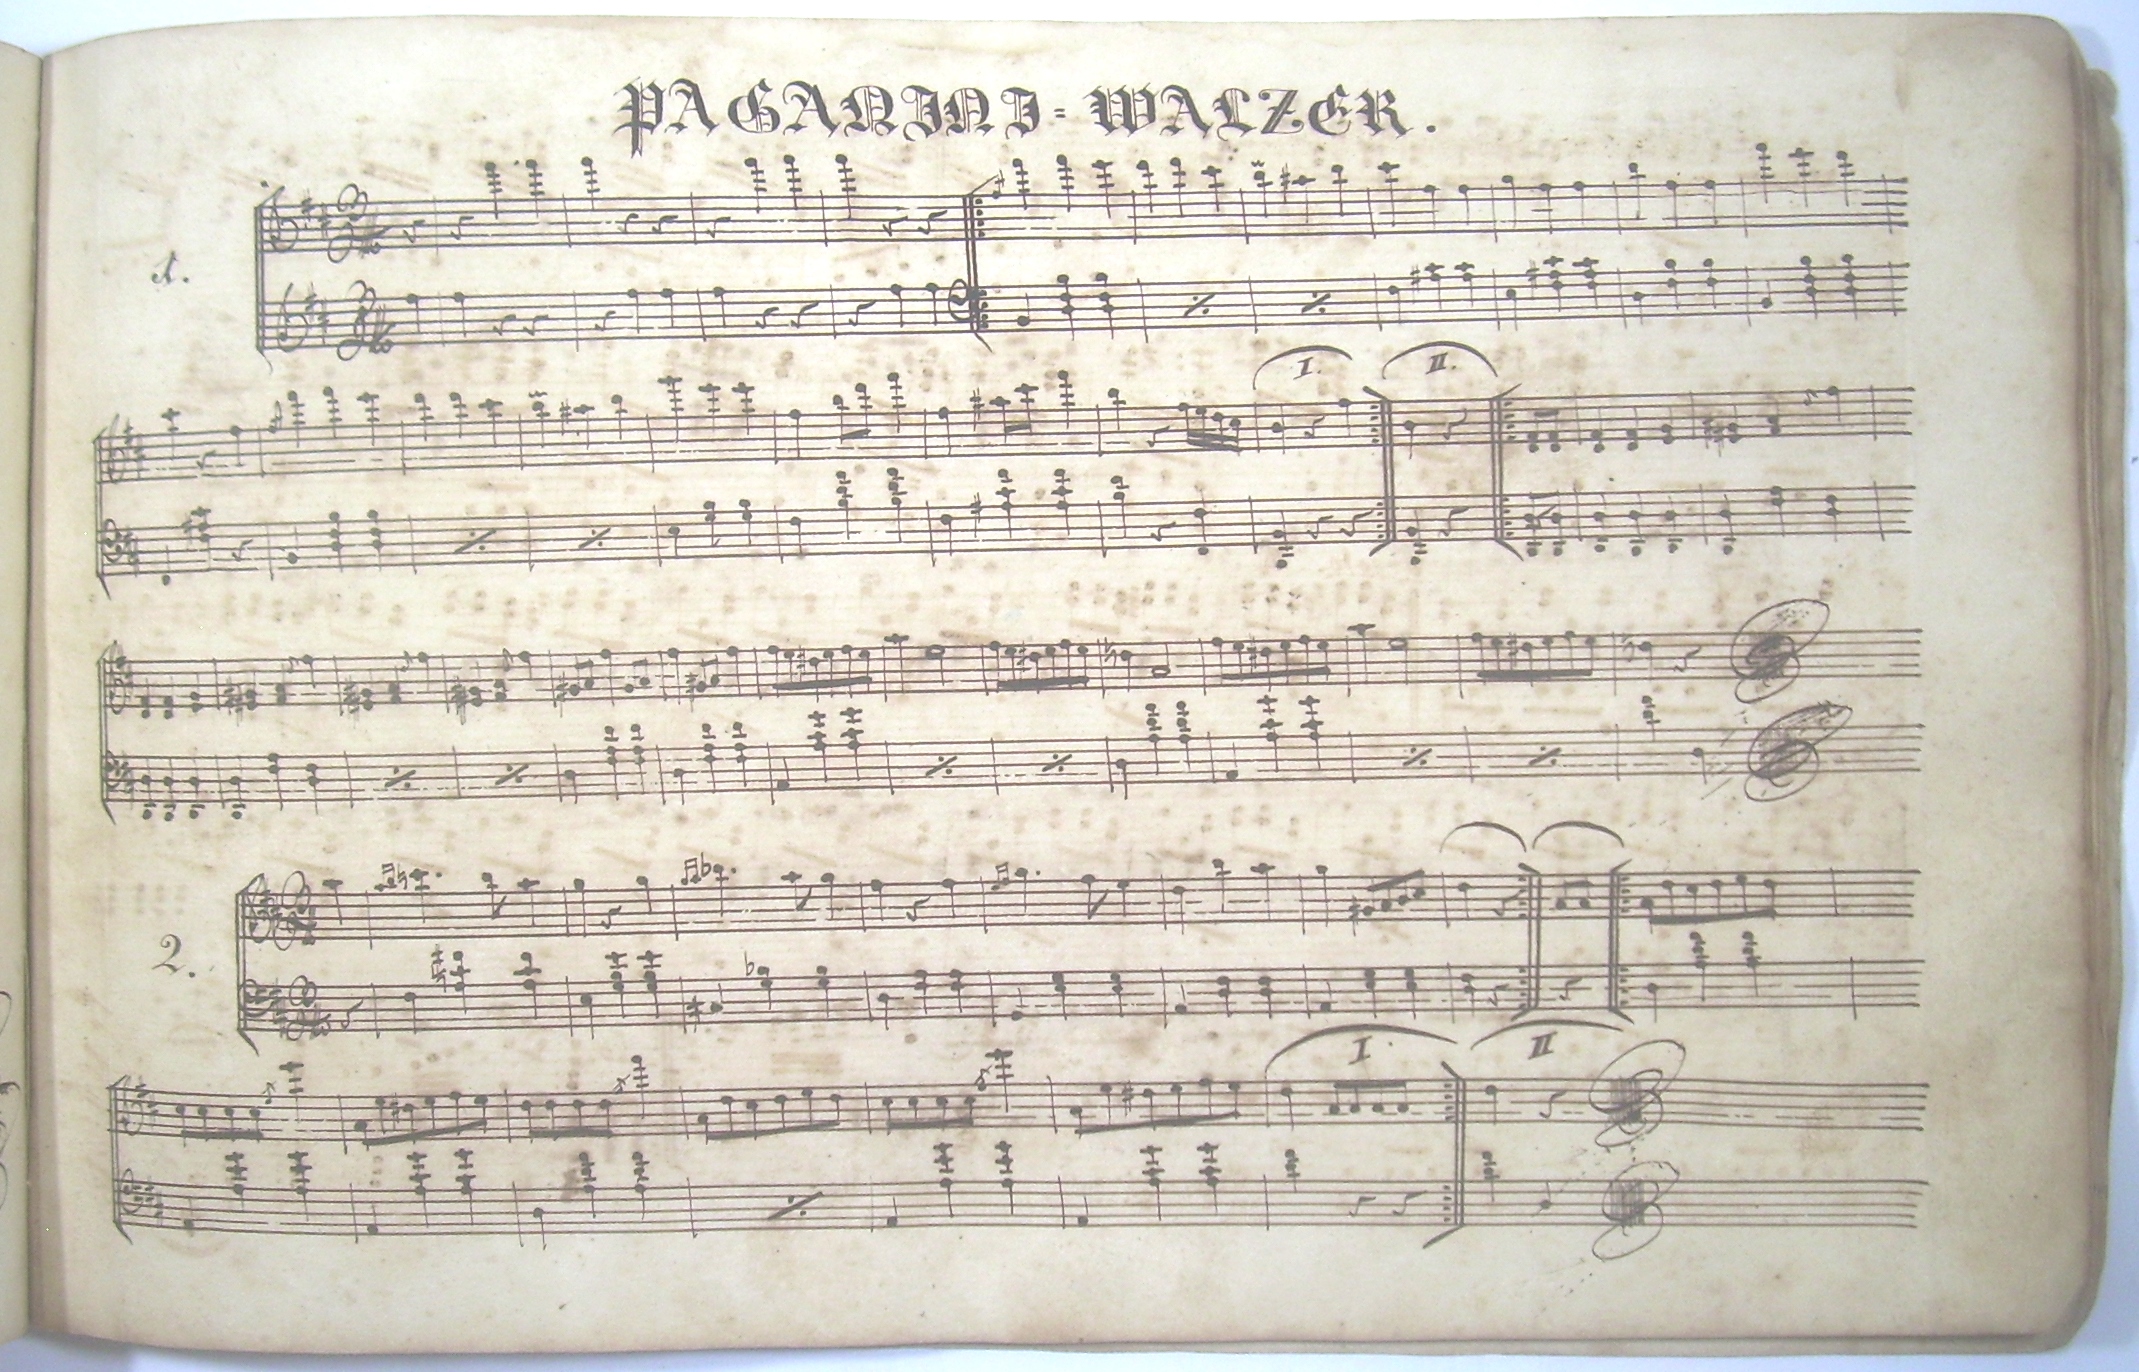 PAGANINI=WALZER.
1.
I. II.
2.
I. II